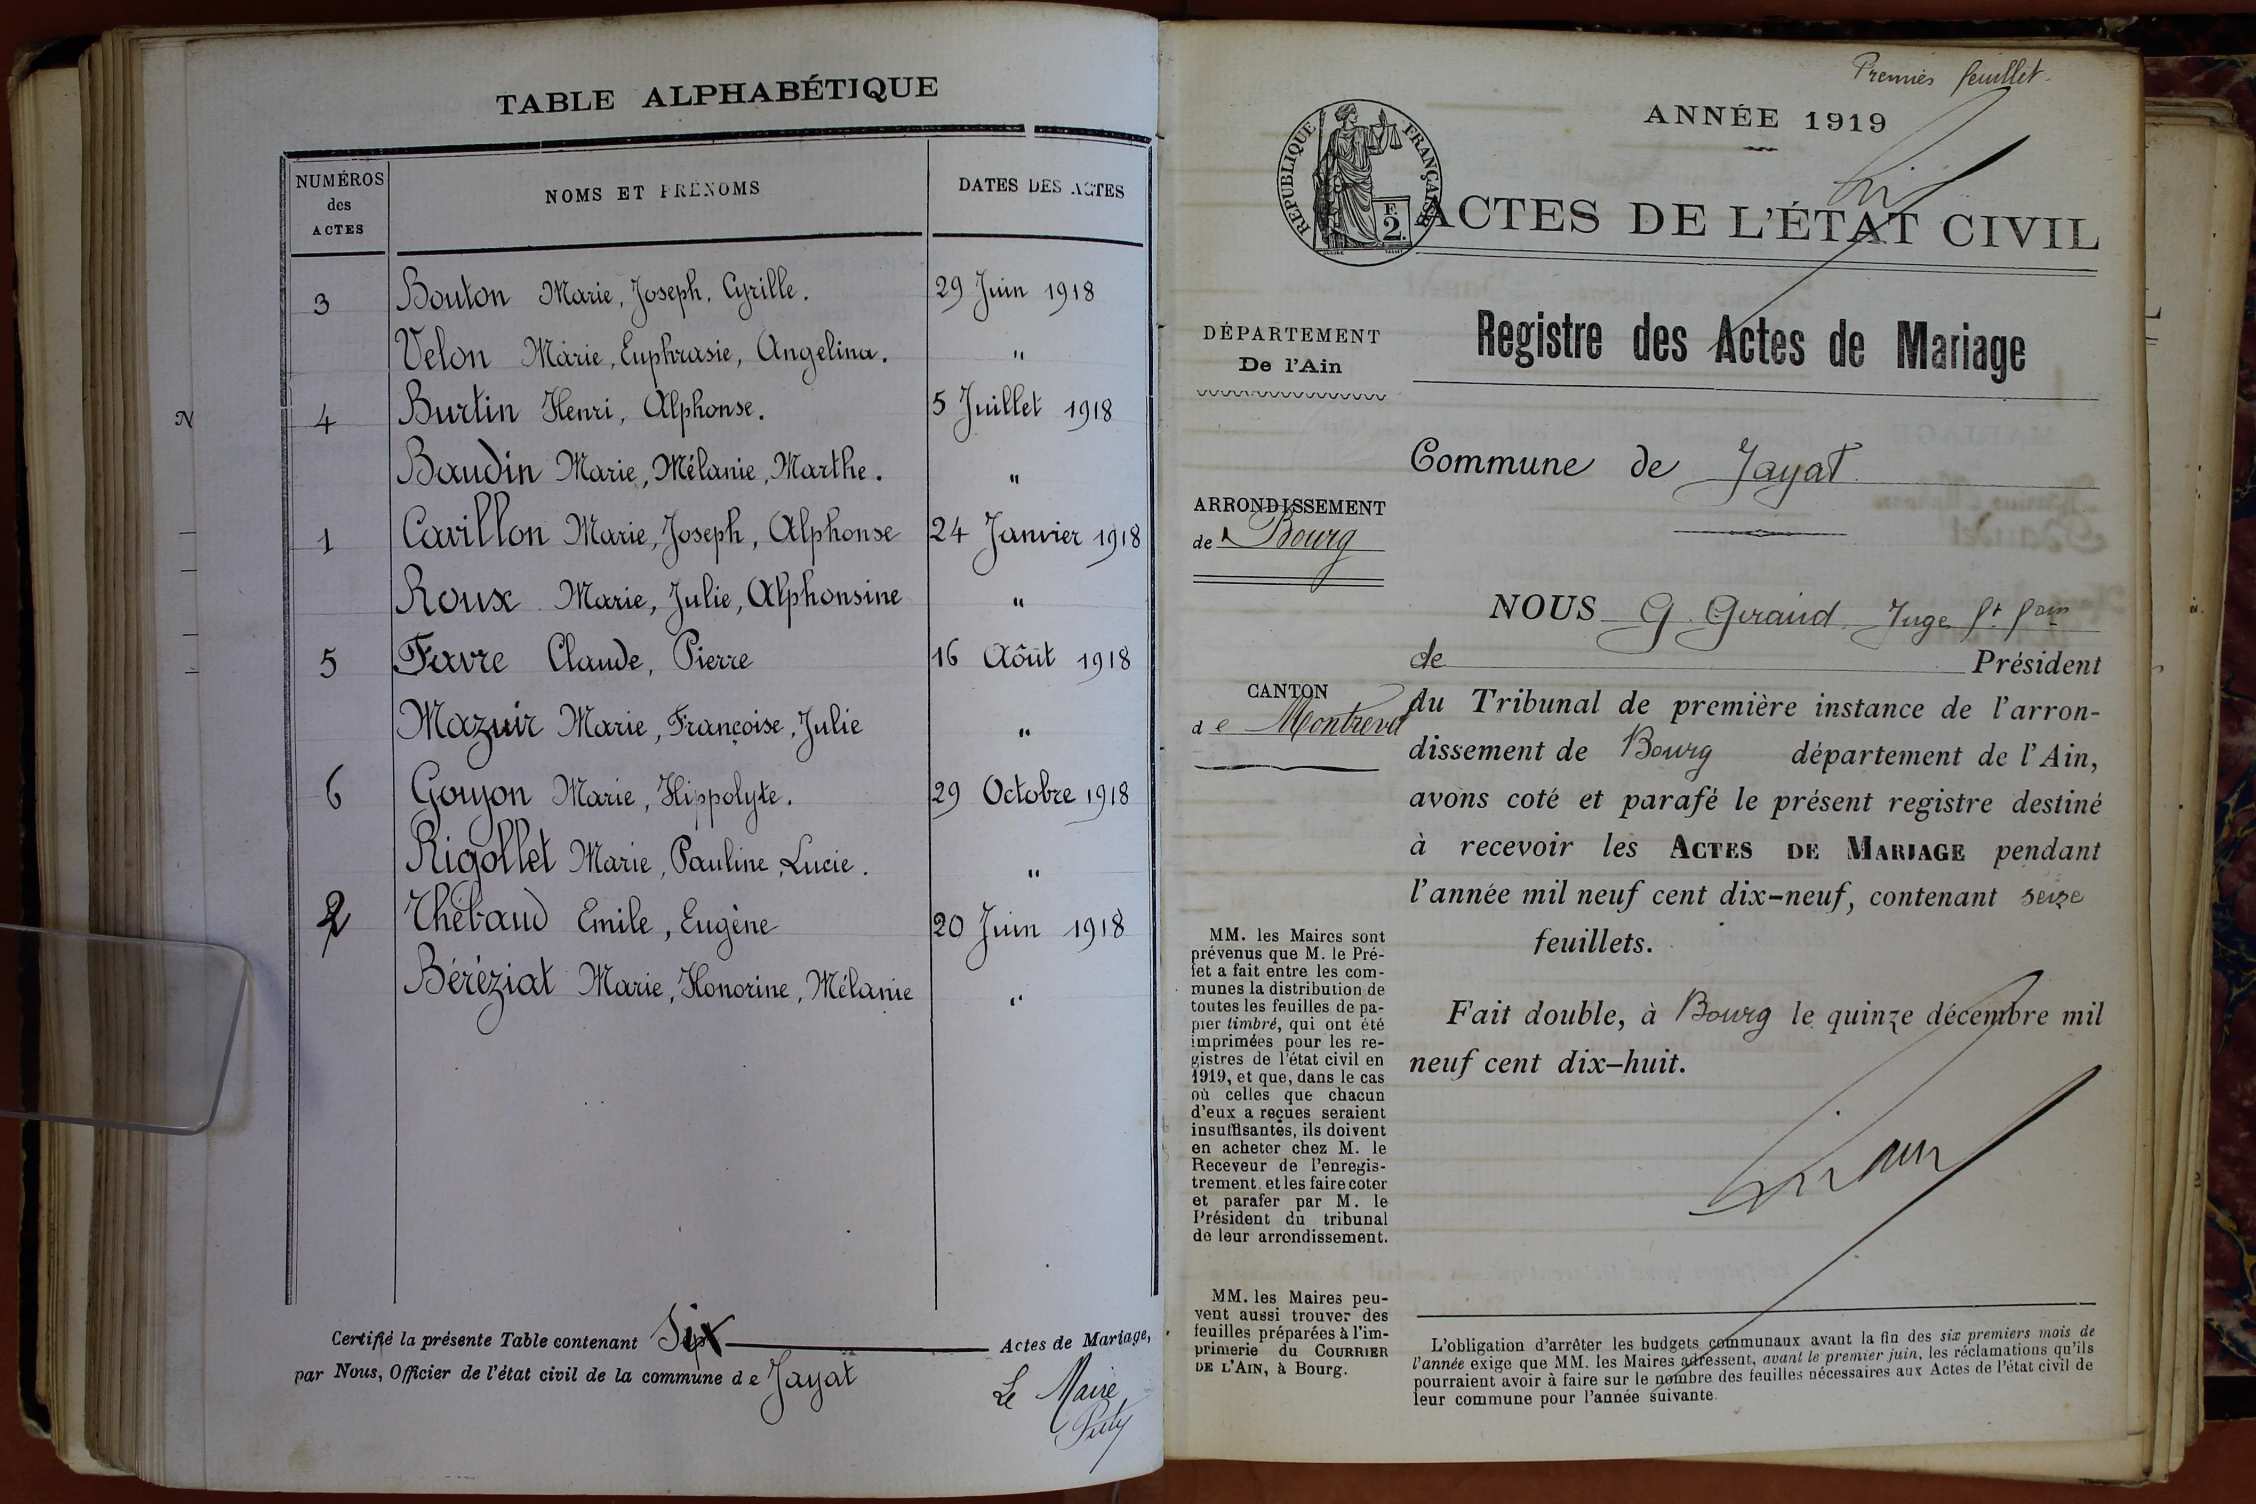 TABLE ALPHABÉTIQUE
NUMÉROS des ACTES
NOMS ET PRÉNOMS
DATES DES ACTES
3 Bouton Marie, Joseph, Cyrille. 29 Juin 1918
Velon Marie, Euphrasie, Angelina. "
N
4 Burtin Henri, Alphonse. 5 Juillet 1918
Baudin Marie, Mélanie, Marthe. "
1 Cavillon Marie, Joseph, Alphonse 24 Janvier 1918
Roux Marie, Julie, Alphonsine "
5 Favre Claude, Pierre 16 Aôut 1918
Mazuir Marie, Françoise, Julie "
6 Goyon Marie, Hippolyte. 29 Octobre 1918
Rigollet Marie, Pauline, Lucie. "
2 Thébaud Emile, Eugène 20 Juin 1918
Béréziat Marie, Honorine, Mélanie "
Certifié la présente Table contenant Six Actes de Mariage,
par Nous, Officier de l'état civil de la commune de Jayat
Le Maire
Premier feuillet.
ANNÉE 1919
RÉPUBLIQUE FRANÇAISE
F. 2.
ACTES DE L'ÉTAT CIVIL
DÉPARTEMENT
De l'Ain
ARRONDISSEMENT
de Bourg
CANTON
de Montrevel
MM. les Maires sont
prévenus que M. le Pré-
fet a fait entre les com-
munes la distribution de
toutes les feuilles de pa-
pier timbré, qui ont été
imprimées pour les re-
gistres de l'état civil en
1919, et que, dans le cas
où celles que chacun
d'eux a reçues seraient
insuffisantes, ils doivent
en acheter chez M. le
Receveur de l'enregis-
trement. et les faire coter
et parafer par M. le
Président du tribunal
de leur arrondissement.
MM. les Maires peu-
vent aussi trouver des
feuilles préparées à l'im-
primerie du COURRIER
DE L'AIN, à Bourg.
Registre des Actes de Mariage
Commune de Jayat
NOUS G. Giraud Juge
de Président
du Tribunal de première instance de l'arron-
dissement de Bourg département de l'Ain,
avons coté et parafé le présent registre destiné
à recevoir les ACTES DE MARIAGE pendant
l'année mil neuf cent dix-neuf, contenant seize
feuillets.
Fait double, à Bourg le quinze décembre mil
neuf cent dix-huit.
L'obligation d'arrêter les budgets communaux avant la fin des six premiers mois de
l'année exige que MM. les Maires adressent, avant le premier juin, les réclamations qu'ils
pourraient avoir à faire sur le nombre des feuilles nécessaires aux Actes de l'état civil de
leur commune pour l'année suivante.